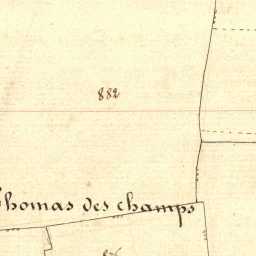 882
Thomas des champs